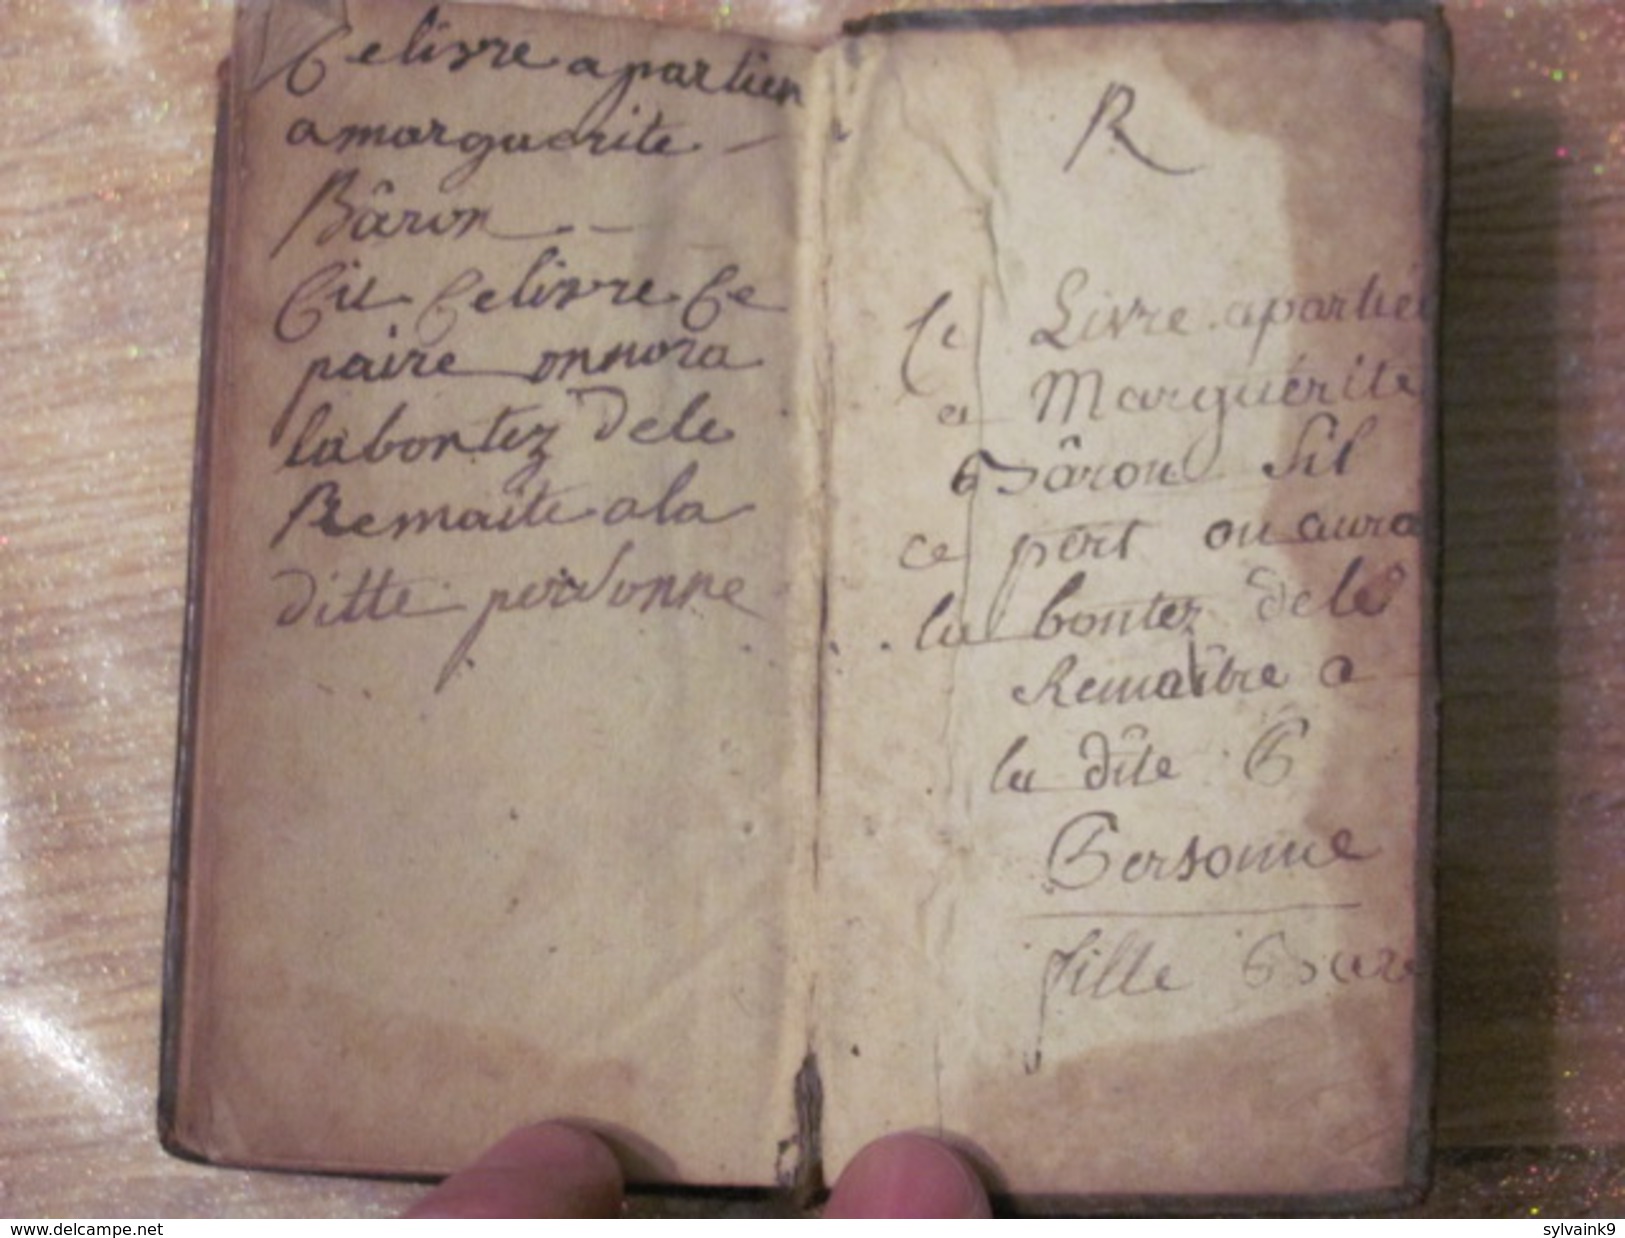 Ce livre apartien
a marguerite
Bâron
Cil Ce livre Ce
paire on nora
la bontez dele
Remaite a la
ditte personne
R
Ce Livre apartie
a Marguérite
Bâron Sil
ce pert on aura
la bontez dele
Remaître a
la dîte P
Personne
fille Baro
www.delcampe.net
sylvaink9